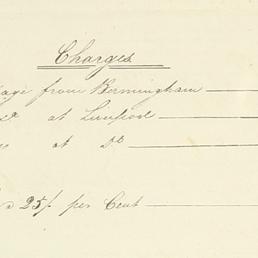 Charges
age from Birmingham
at Liverpool
at Do
25/ per Cent